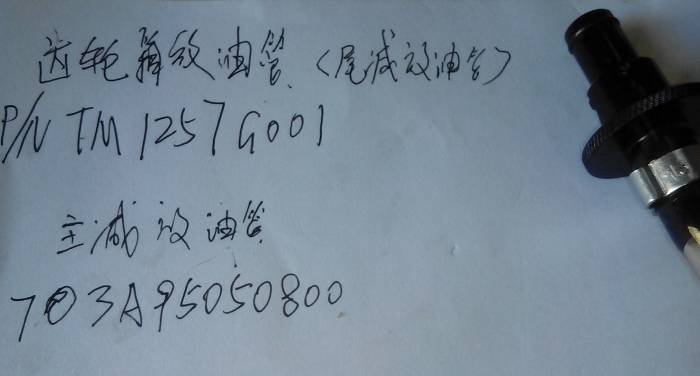 齿轮箱放油管（尾减放油管）
P/N TM1257G001
主减放油管
703A95050800